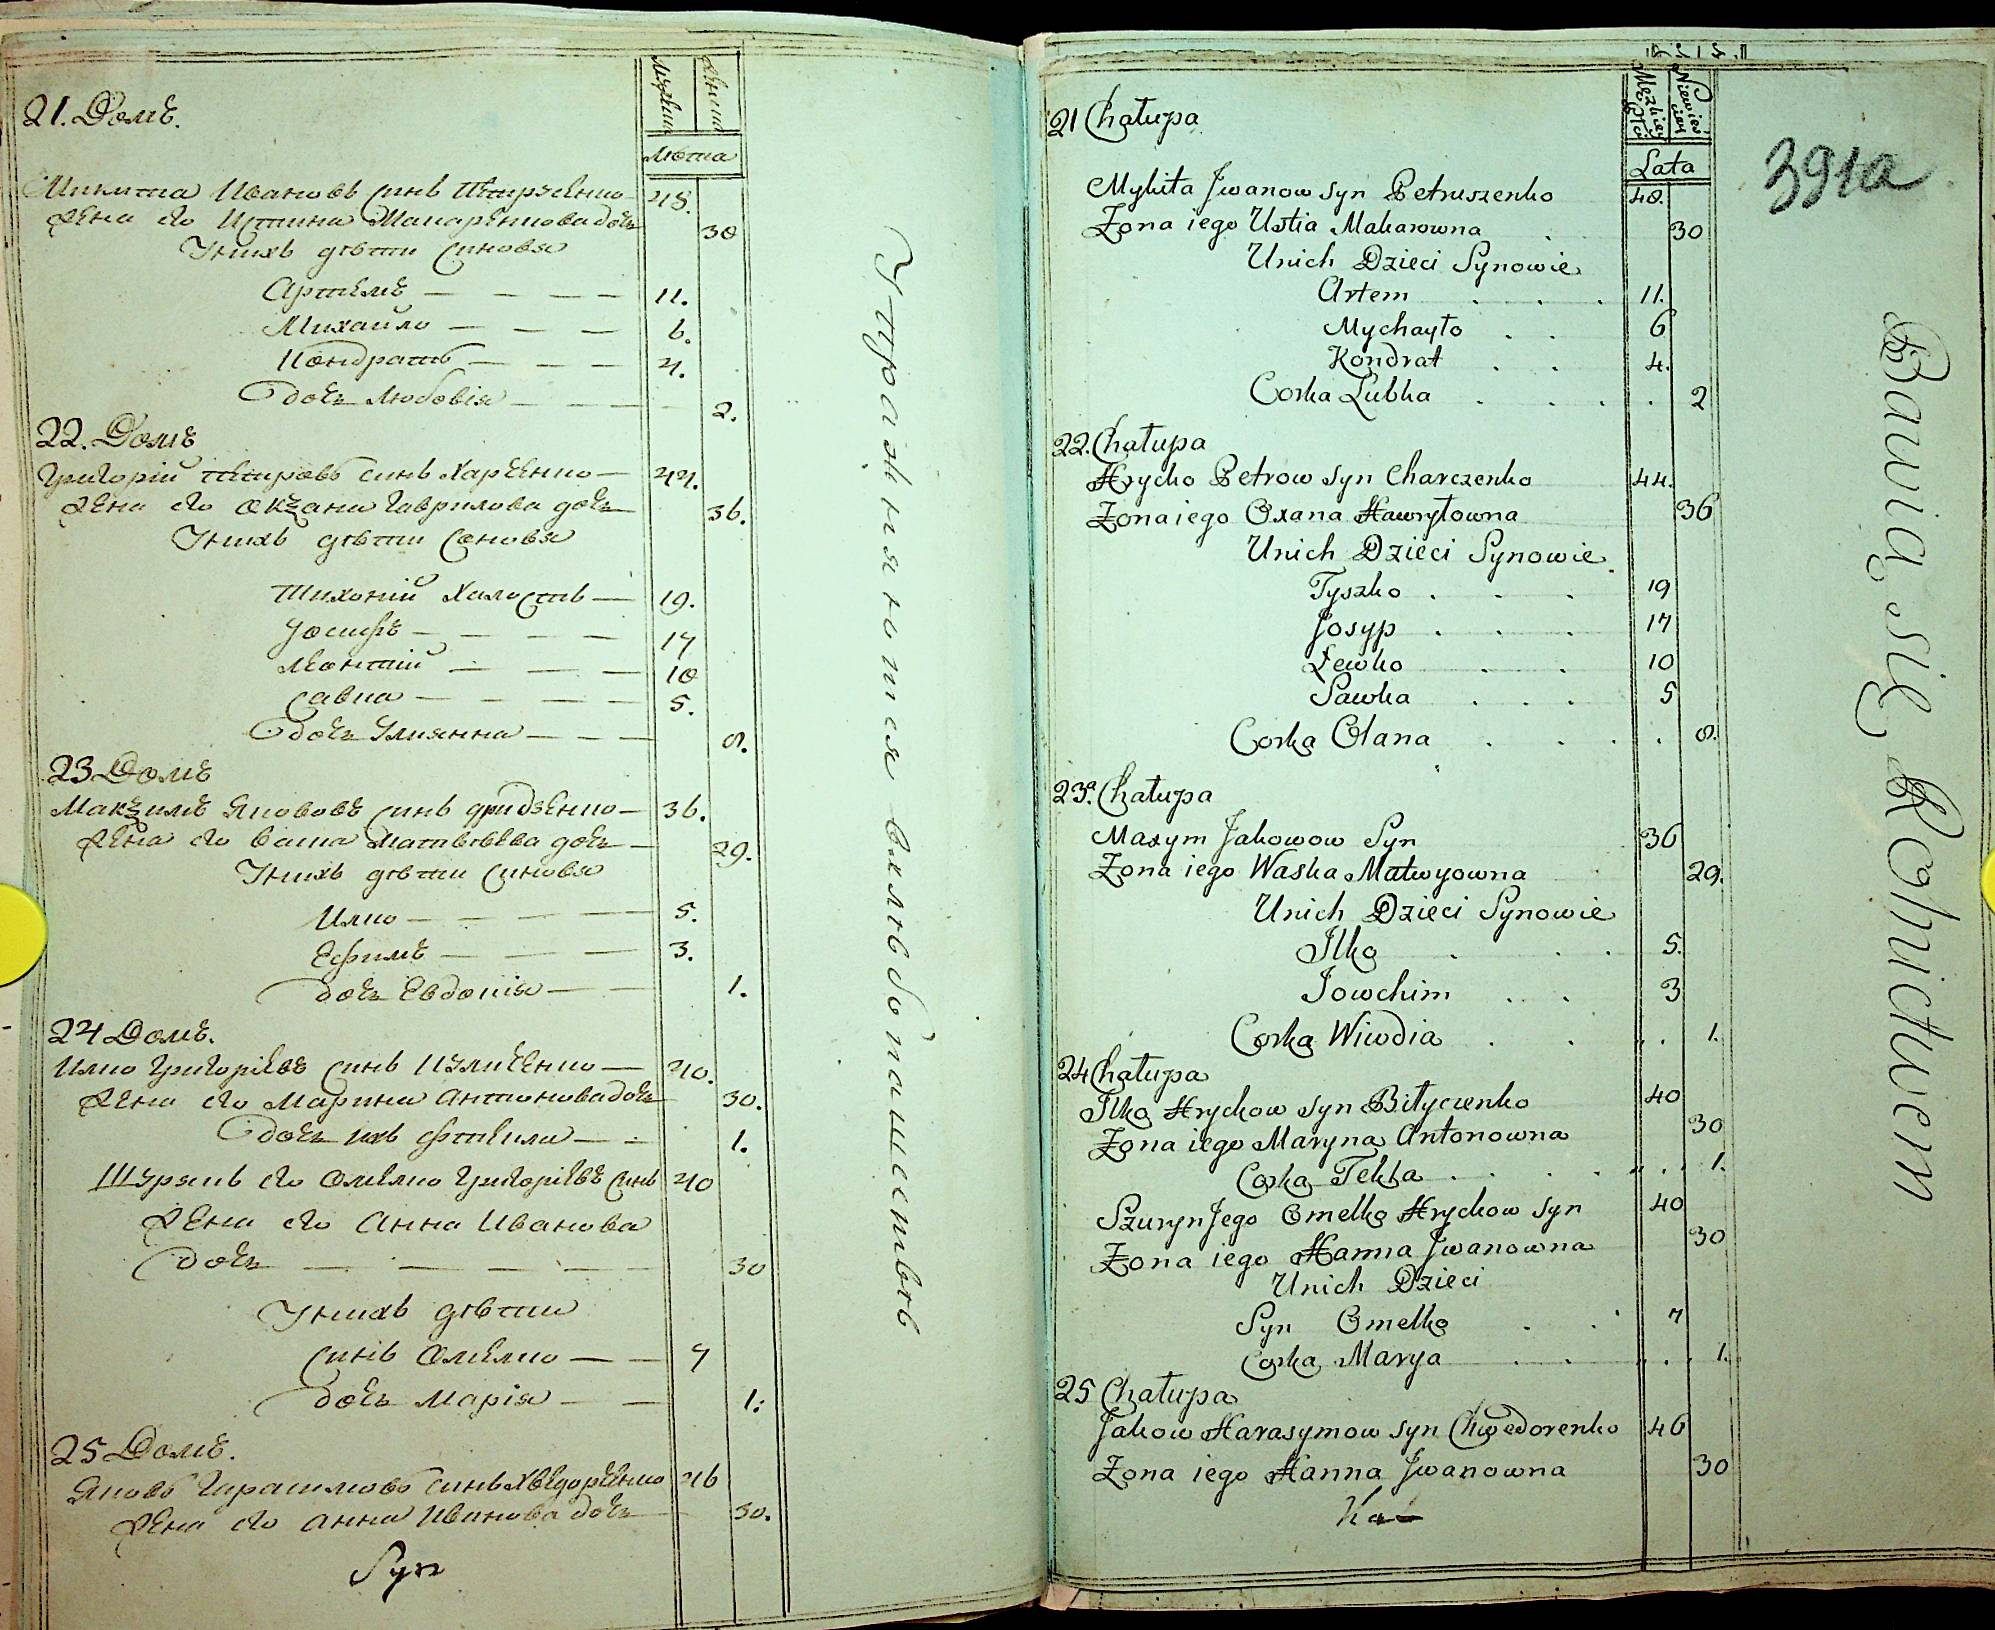 Мужски Женски
Лѣта
21. Домъ.
Микита Ивановъ синъ Петрусенко 48.
Жена его Устина Макаренкова дочь 30
У нихъ дѣти синовя
Артемъ 11.
Михайло 6.
Кондратъ 4.
дочь Любовія 2.
22. Домъ
Григорій Петровъ синъ Харченко 44.
Жена его Окзана Гаврилова дочь 36.
У нихъ дѣти синовя
Тихоній Халостъ 19.
Іосифъ 17
Леонтій 10
Савка 5.
дочь Улиянна 8.
23 Домъ
Макзимъ Якововъ синъ 36.
Жена его Васка Матвѣева дочь 29.
У нихъ дѣти синовя
Илко 5.
Ефимъ 3.
дочь Евдокія 1.
24 Домъ.
Илко Григоріевъ синъ 40.
Жена его Марина Антонова дочь 30.
дочь ихъ 1.
Шурякъ его Омелко Григоріевъ синъ 40
Жена его Анна Иванова
дочь 30
У нихъ дѣти
синъ Омелко 7
дочь Марія 1.
25 Домъ.
Яковъ Гарасимовъ синъ Хведоренко 46
Жена его Анна Иванова дочь 30.
Syn
Упражняються въ хлѣбопашествѣ
Męzkiey Płci Niewieściey
Lata
391a
21 Chałupa
Mykita Jwanow syn Petruszenko 48.
Żona iego Ustia Makarowna 30
Unich Dzieci Synowie
Artem 11.
Mychayło 6
Kondrat 4.
Corka Lubka 2
22. Chałupa
Hrycko Petrow syn Charczenko 44.
Żona iego Oxana Hawryłowna 36
Unich Dzieci Synowie
Tyszko 19
Josyp 17
Lewko 10
Sawka 5
Corka Olana 8.
23a. Chałupa
Maxym Jakowow Syn 36
Żona iego Waska Matwyowna 29.
Unich Dzieci Synowie
Ilko 5.
Jowchim 3
Corka Wiwdia 1.
24 Chałupa
Ilko Hryckow syn Bityczenko 40
Żona iego Maryna Antonowna 30
Corka Tekla 1.
Szuryn Jego Omelko Hryckow syn 40
Żona iego Hanna Jwanowna 30
Unich Dzieci
Syn Omelko 7
Corka Marya 1.
25 Chałupa
Jakow Harasymow syn Chwedorenko 46
Żona iego Hanna Jwanowna 30
Bawią się Rolnictwem